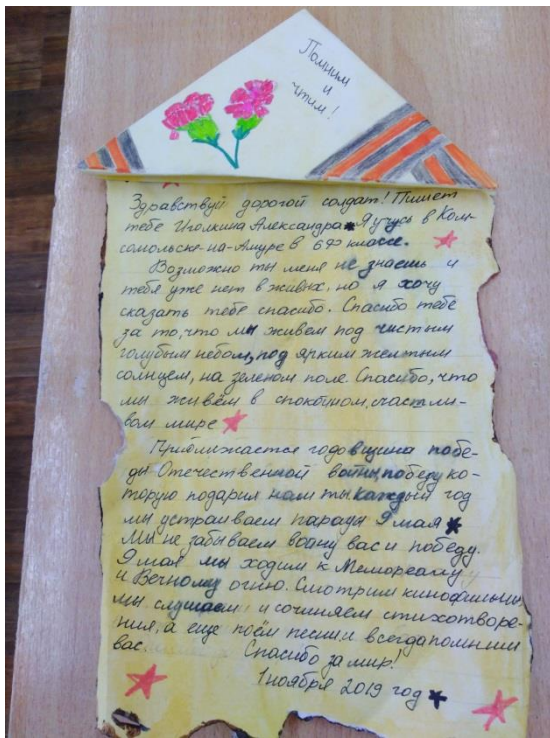 Помним
и
чтим!
Здравствуй дорогой солдат! Пишет
тебе Иголкина Александра Я учусь в Ком-
сомольске-на-Амуре в 6 классе.
Возможно ты меня не знаешь и
тебя уже нет в живых, но я хочу
сказать тебе спасибо. Спасибо тебе
за то, что мы живем под чистым
голубым небом, под ярким желтым
солнцем, на зеленом поле. Спасибо, что
мы живём в спокойном, счастли-
вом мире
Приближается годовщина побе-
ды Отечественной войны, победу ко-
торую подарил нам ты каждый год
мы устраиваем парады 9 мая
Мы не забываем войну вас и победу.
9 мая мы ходим к Мемореалу
и Вечному огню. Смотрим кинофильмы
мы слушаем и сочиняем стихотворе-
ния, а еще поём песни и всегда помним
вас Спасибо за мир!
1 ноября 2019 год